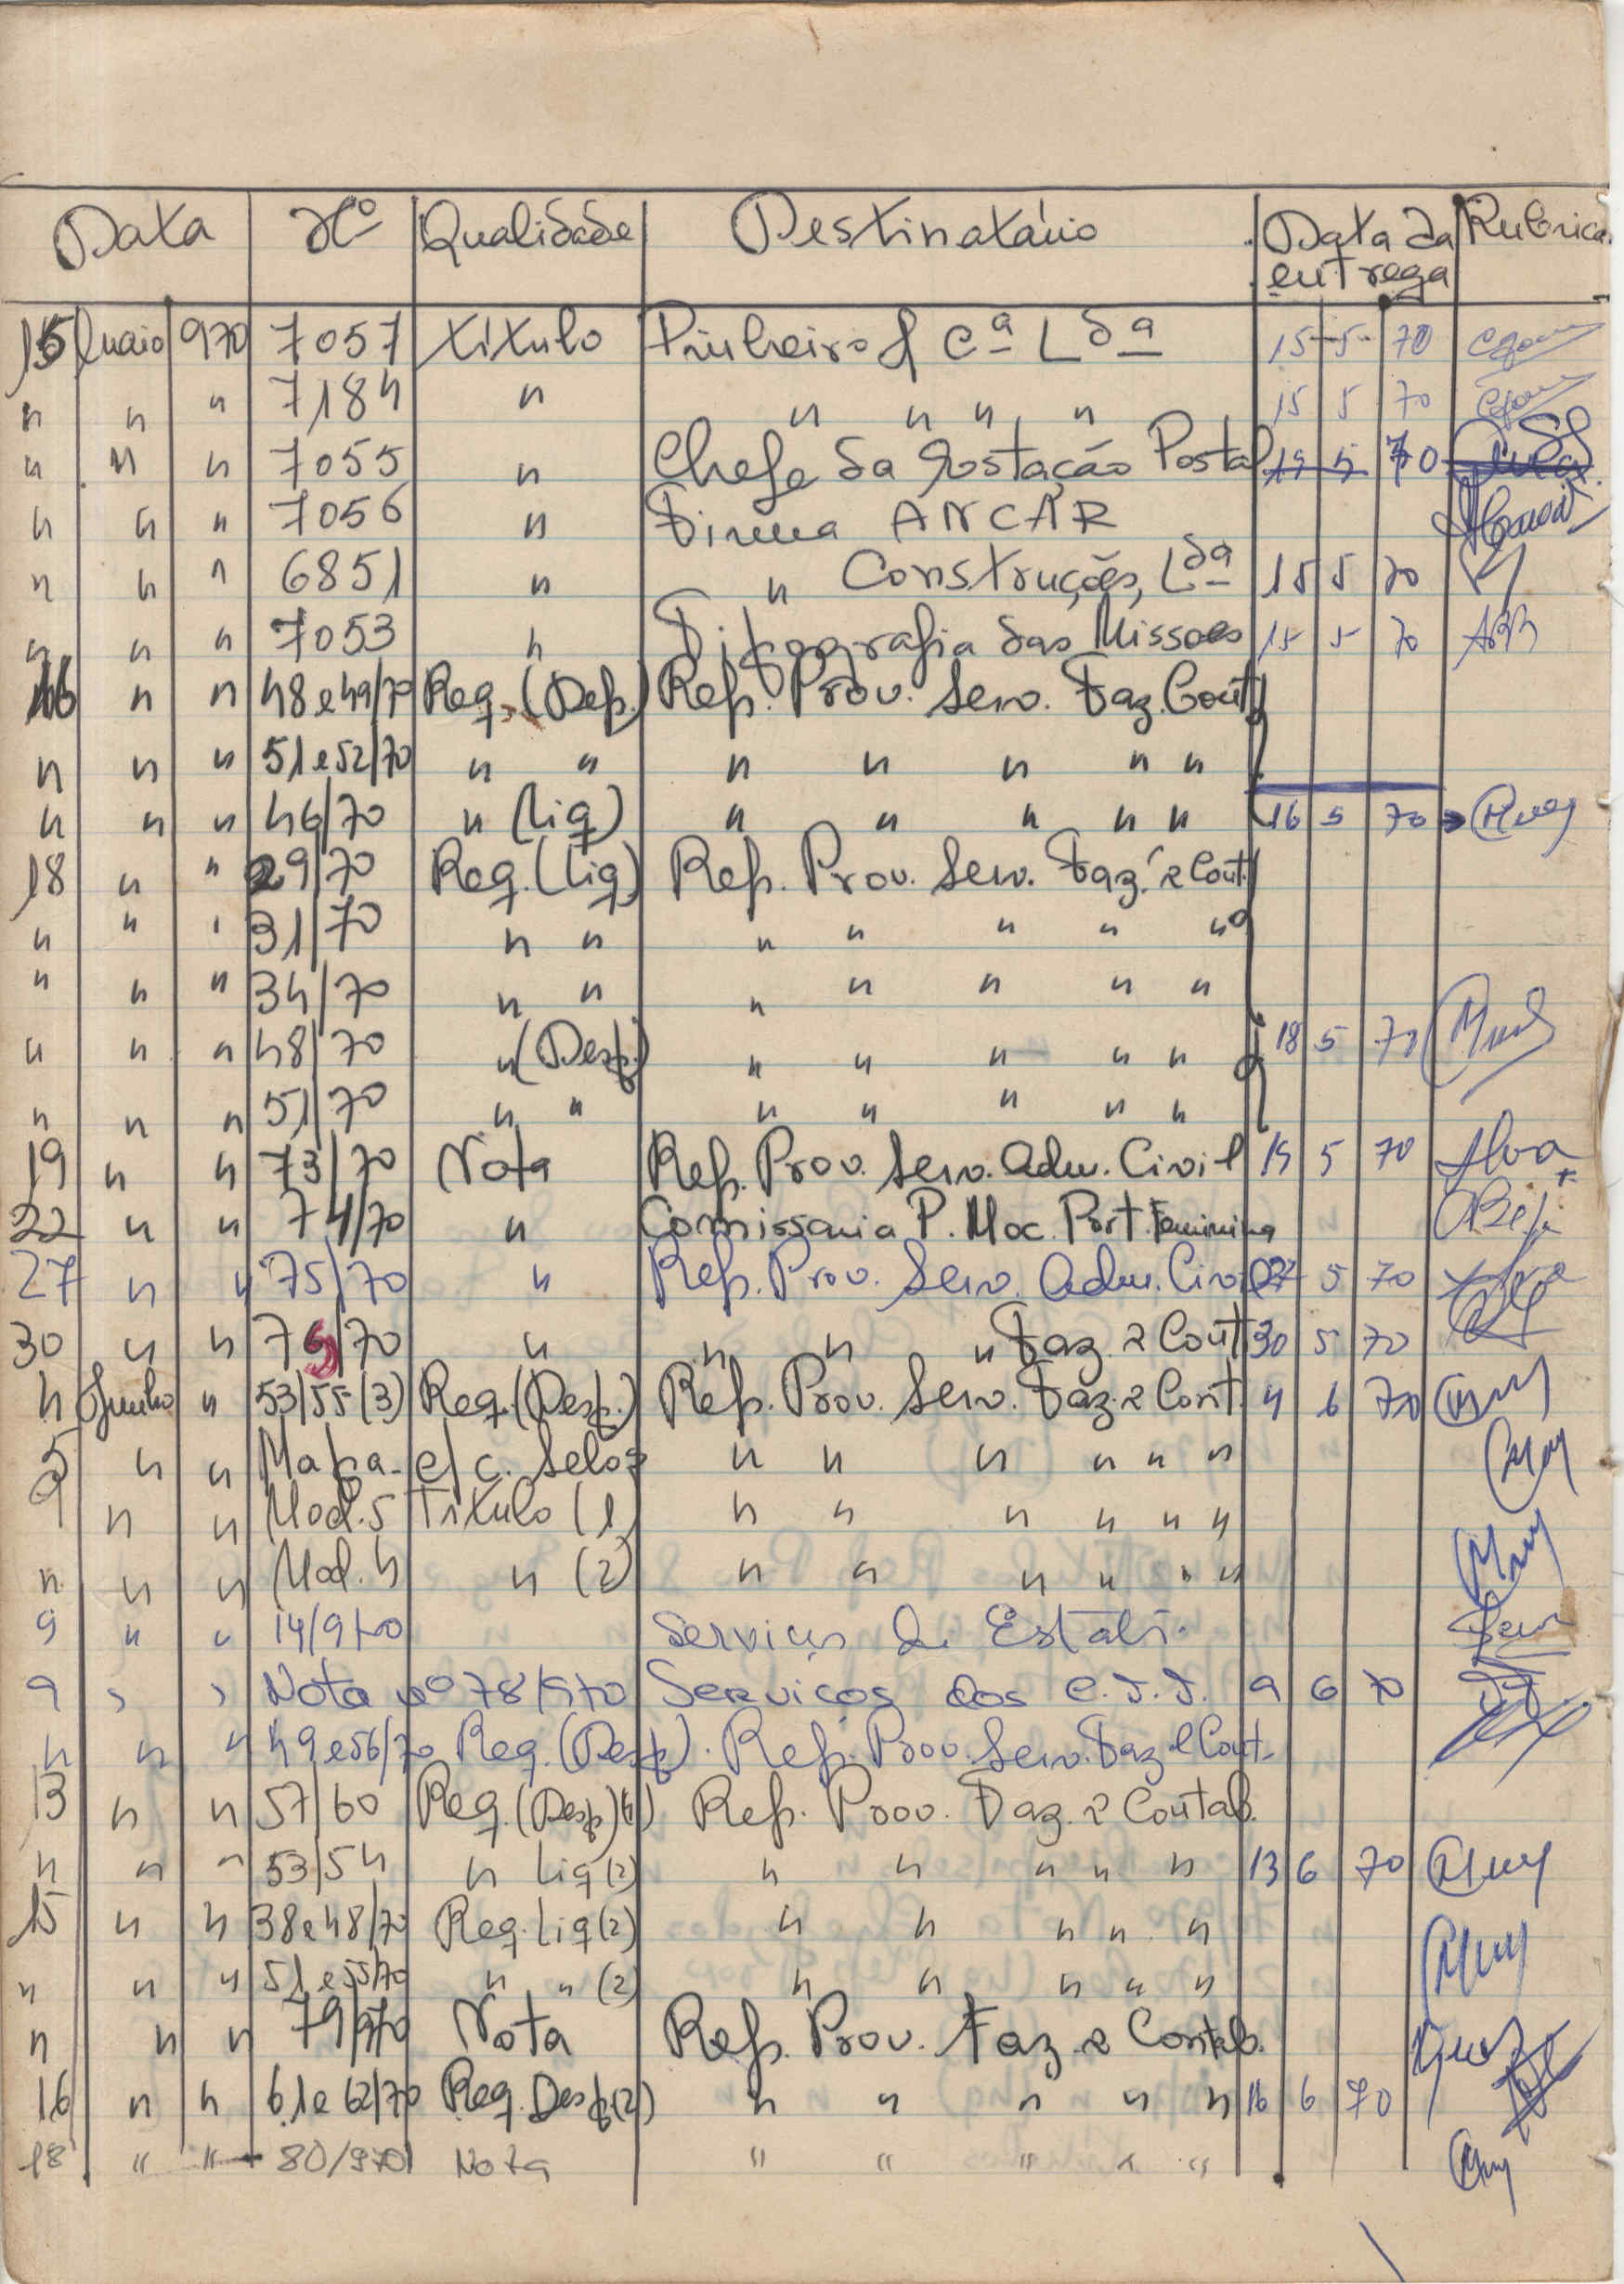 Data Nº Qualidade Destinatário Data da entrega Rubrica
15 Maio 970 7057 Título Pinheiro & Cª Ldª 15-5-70
" " " 7184 " " " " " 15 5 70
" " " 7055 " Chefe da Estação Postal 19 5 70
" " " 7056 " Firma ANCAR
" " " 6851 " " Construções, Ldª 15 5 70
" " " 7053 " Tipografia das Missoes 15 5 70
16 " " 48 e 49/70 Req. (Desp.) Rep. Prov. Serv. Faz. Cont.
" " " 51 e 52/70 " " " " " " "
" " " 46/70 " (Liq) " " " " " 16 5 70
18 " " 29/70 Req. (Liq) Rep. Prov. Serv. Faz. e Cont.
" " " 31/70 " " " " " " "
" " " 34/70 " " " " " " "
" " " 48/70 " (Desp.) " " " " " 18 5 70
" " " 51/70 " " " " " " "
19 " " 73/70 Nota Rep. Prov. Serv. Adm. Civil 19 5 70
22 " " 74/70 " Comissaria P. Moc. Port. Feminina
27 " " 75/70 " Rep. Prov. Serv. Adm. Civil 27 5 70
30 " " 70 " " " " Faz. e Cont. 30 5 70
4 Junho " 53/55 (3) Req. (Desp.) Rep. Prov. Serv. Faz. e Cont. 4 6 70
5 " " Mapa c/c. Selos " " " " " "
9 " " Mod. 5 Titulo (1) " " " " " "
" " " Mod. 4 " (2) " " " " " "
9 " " 14/970 Serviços de Estati.
9 " " Nota nº 78/970 Serviços dos C.T.T. 9 6 70
" " " 49 e 56/70 Req. (Desp.) Rep. Prov. Serv. Faz e Cont.
13 " " 57/60 Req. (Desp) (4) Rep. Prov. Faz. e Contab.
" " " 53/54 " Liq (2) " " " " " 13 6 70
15 " " 38 e 48/70 Req. Liq (2) " " " " "
" " " 51 e 55/70 " " (2) " " " " "
" " " 79/970 Nota Rep. Prov. Faz e Contab.
16 " " 61 e 62/70 Req. Desp (2) " " " " " 16 6 70
18 " " 80/970 Nota " " " " "